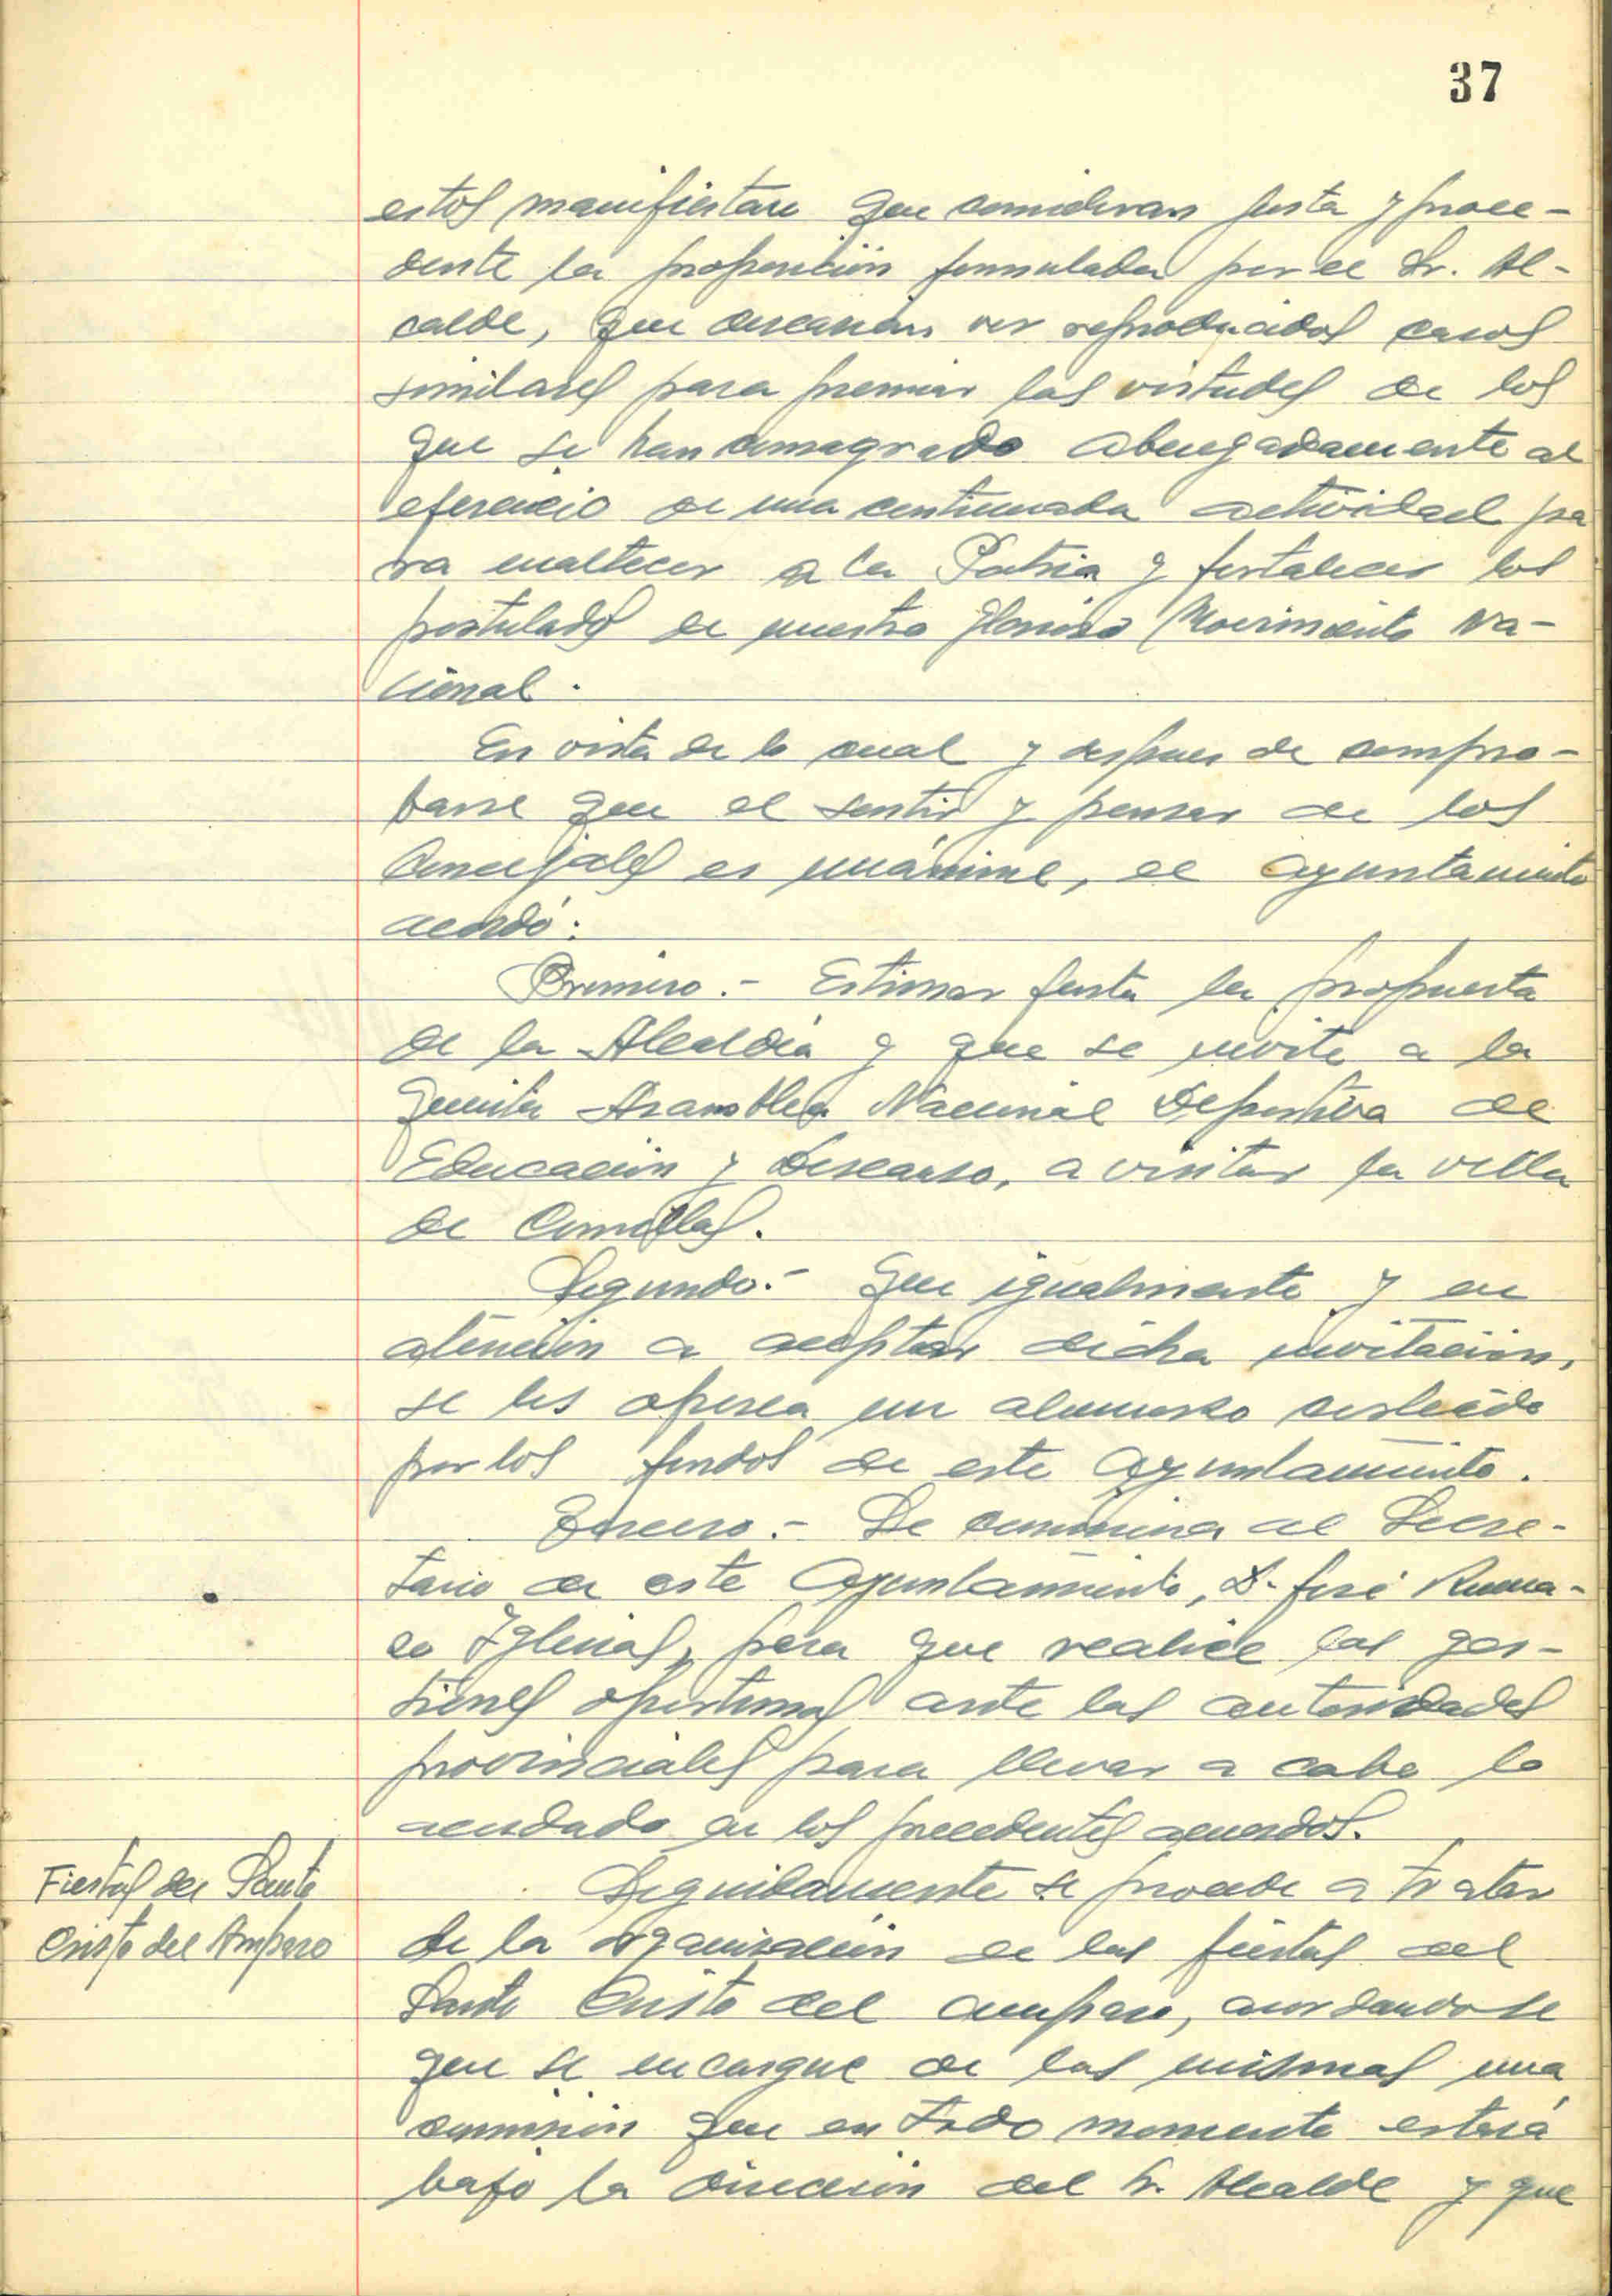 37
estos manifiestan que consideran justa y proce-
dente la proposición formulada por el Sr. Al-
calde, que desearían ver reproducidos casos
similares para premiar las virtudes de los
que se han consagrado abnegadamente al
ejercicio de una continuada actividad pa
ra enaltecer a la Patria y fortalecer los
postulados de nuestro glorioso Movimiento Na-
cional.
En vista de lo cual y despues de compro-
barse que el sentir y pensar de los
Concejales es unánime, el Ayuntamiento
acordó:
Primero.- Estimar justa la propuesta
de la Alcaldía y que se invite a la
quinta Asamblea Nacional Deportiva de
Educación y Descanso, a visitar la villa
de Comillas.
Segundo.- Que igualmente y en
atención a aceptar dicha invitación,
se les ofrezca un almuerzo costeado
por los fondos de este Ayuntamiento.
Tercero.- Se comisiona al Secre-
tario de este Ayuntamiento, D. José
Iglesias, para que realice las ges-
tiones oportunas ante las autoridades
provinciales para llevar a cabo lo
acordado en los precedentes acuerdos.
Fiestas del Santo
Cristo del Amparo
Seguidamente se procede a tratar
de la organización de las fiestas del
Santo Cristo del Amparo, acordandose
que se encargue de las mismas una
comisión que en todo momento estará
bajo la dirección del Sr. Alcalde y que